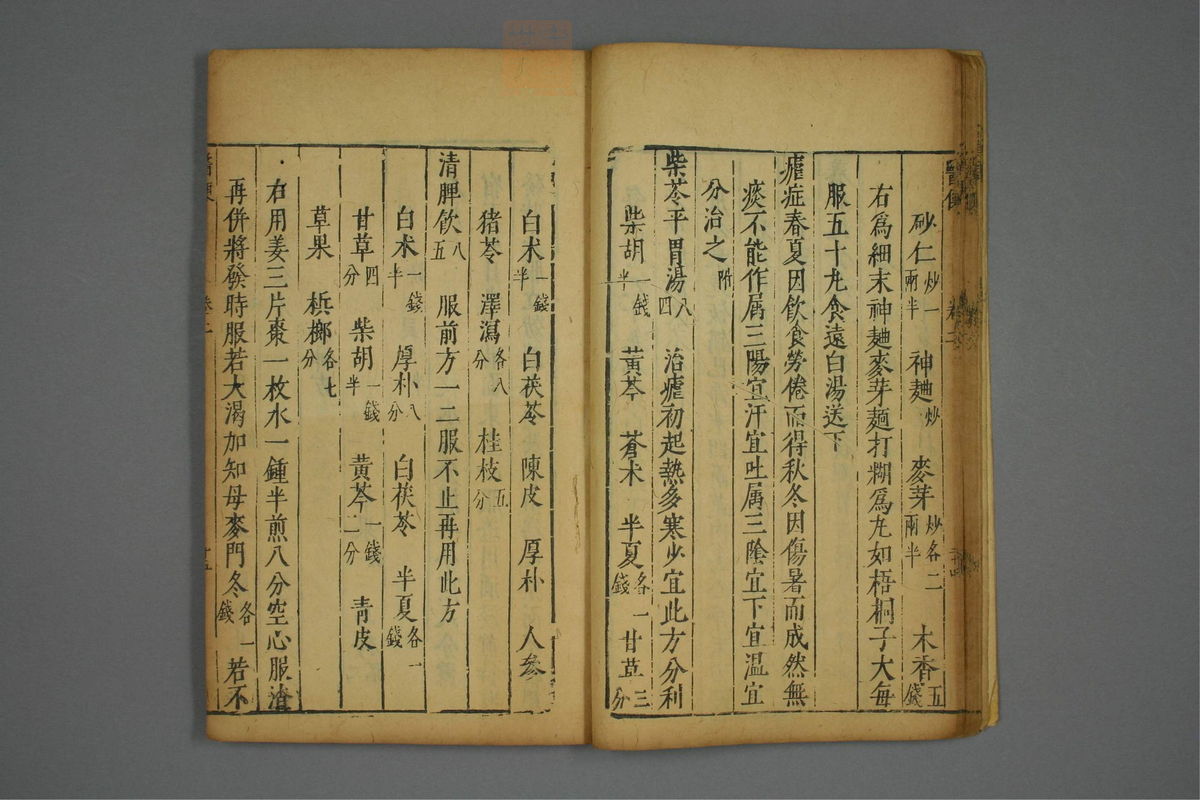 醫便
卷二
二十四
砂仁炒一兩半 神麯炒 麥芽炒各二兩半 木香五錢
右爲細末神麯麥芽麺打糊爲丸如梧桐子大每
服五十丸食遠白湯送下
瘧症春夏因飲食勞倦而得秋冬因傷暑而成然無
痰不能作属三陽宜汗宜吐属三陰宜下宜温宜
分治之附
柴苓平胃湯八四 治瘧初起熱多寒少宜此方分利
柴胡一錢半 黃芩 蒼术 半夏各一錢 甘草三分
白术一錢半 白茯苓 陳皮 厚朴 人參
猪苓 澤瀉各八分 桂枝五分
清脾飲八五 服前方一二服不止再用此方
白术一錢半 厚朴八分 白茯苓 半夏各一錢
甘草四分 柴胡一錢半 黃芩一錢二分 青皮
草果 梹榔各七分
右用姜三片棗一枚水一鍾半煎八分空心服渣
再併將發時服若大渴加知母麥門冬各一錢若不
醫便
卷二